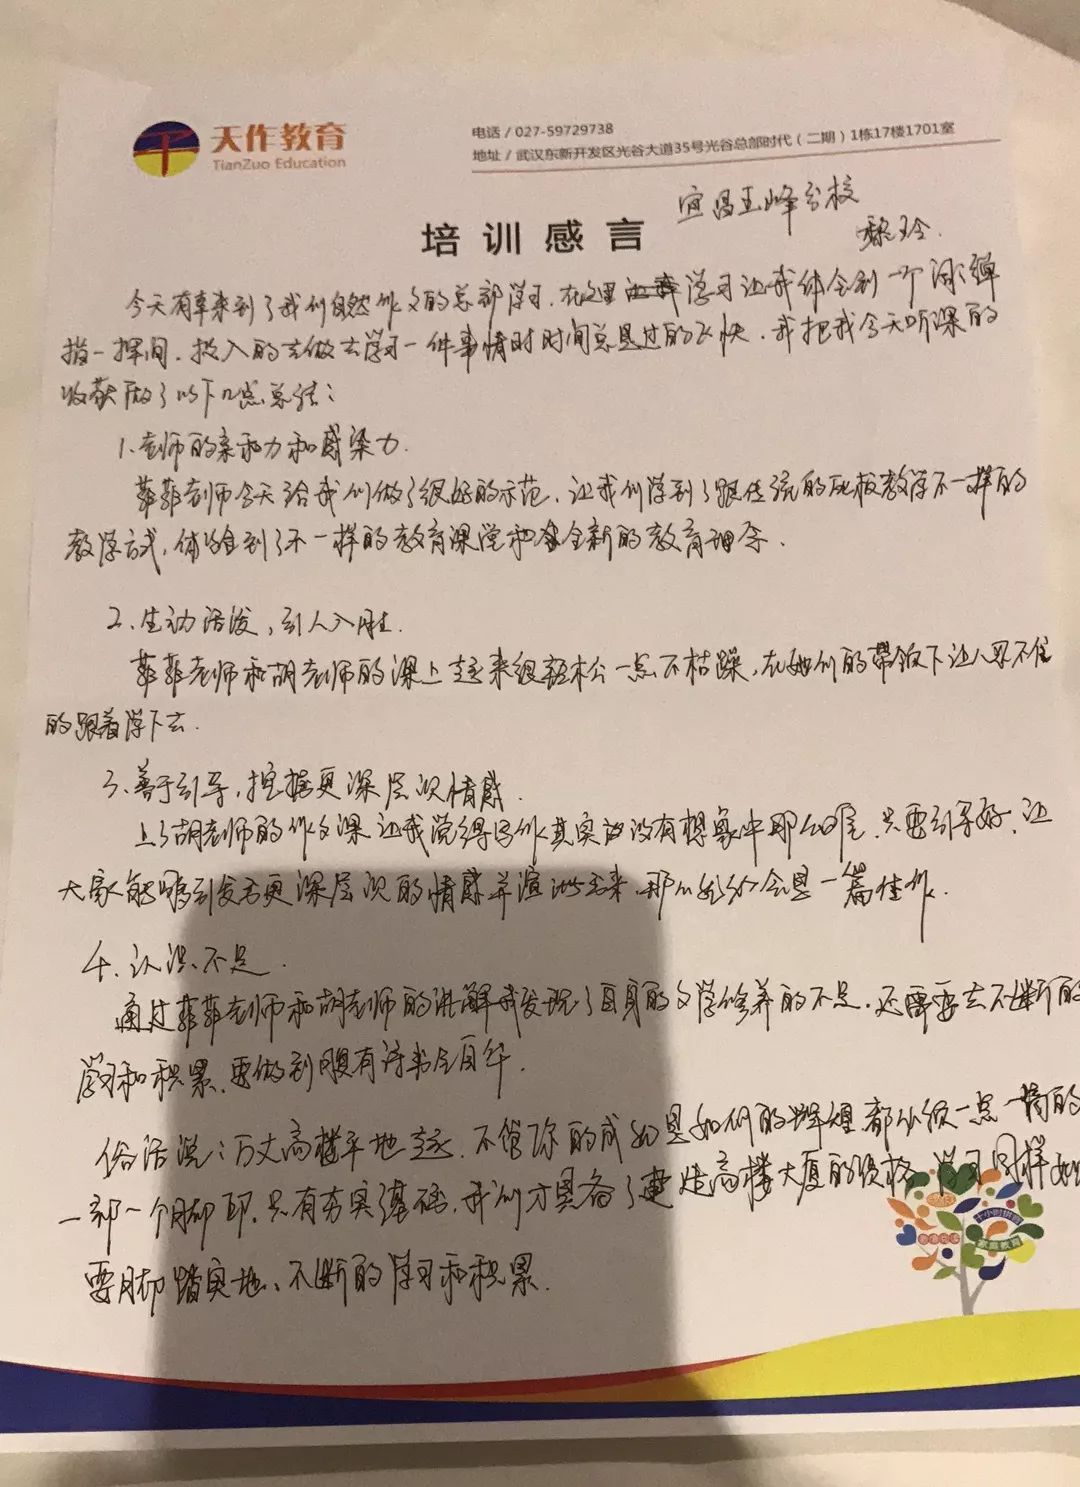 天作教育
TianZuo Education
电话 / 027-59729738
地址 / 武汉东新开发区光谷大道35号光谷总部时代（二期）1栋17楼1701室
宜昌玉峰分校
培训感言
魏玲.
今天有幸来到了我们自然作文的总部学习.在这里学习让我体会到一个词:弹
指一挥间.投入的去做去学习一件事情时时间总是过的飞快.我把我今天听课的
收获做了以下几点总结:
1.老师的亲和力和感染力.
菲菲老师今天给我们做了很好的示范.让我们学到了跟传统的死板教学不一样的
教学方式,体会到了不一样的教育课堂和全新的教育理念.
2.生动活泼,引人入胜.
菲菲老师和胡老师的课上起来很轻松一点不枯躁,在她们的带领下让人忍不住
的跟着学下去.
3.善于引导,挖掘更深层次情感.
上了胡老师的作文课让我觉得写作其实没有想象中那么难.只要引导好,让
大家能够引发出更深层次的情感并演说出来,那么始终会是一篇佳作.
4.认识不足.
通过菲菲老师和胡老师的讲解我发现了自身的文学修养的不足.还需要去不断的
学习和积累.要做到腹有诗书气自华.
俗话说:万丈高楼平地起.不管你的成如是如何的辉煌都必须一点一滴的
一部一个脚印.只有夯实基础.我们才具备了建造高楼大厦的资格.学习同样如
要脚踏实地、不断的学习和积累.
十小时拼音
家庭教育